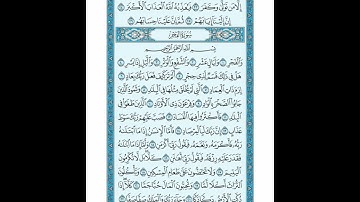 إِلَّا مَن تَوَلَّىٰ وَكَفَرَ ﴿٢٣﴾ فَيُعَذِّبُهُ اللَّهُ الْعَذَابَ الْأَكْبَرَ ﴿٢٤﴾
إِنَّ إِلَيْنَا إِيَابَهُمْ ﴿٢٥﴾ ثُمَّ إِنَّ عَلَيْنَا حِسَابَهُم ﴿٢٦﴾
سُورَةُ الْفَجْرِ
بِسْمِ اللَّهِ الرَّحْمَٰنِ الرَّحِيمِ
وَالْفَجْرِ ﴿١﴾ وَلَيَالٍ عَشْرٍ ﴿٢﴾ وَالشَّفْعِ وَالْوَتْرِ ﴿٣﴾ وَاللَّيْلِ إِذَا يَسْرِ ﴿٤﴾
هَلْ فِي ذَٰلِكَ قَسَمٌ لِّذِي حِجْرٍ ﴿٥﴾ أَلَمْ تَرَ كَيْفَ فَعَلَ رَبُّكَ بِعَادٍ ﴿٦﴾
إِرَمَ ذَاتِ الْعِمَادِ ﴿٧﴾ الَّتِي لَمْ يُخْلَقْ مِثْلُهَا فِي الْبِلَادِ ﴿٨﴾ وَثَمُودَ الَّذِينَ
جَابُوا الصَّخْرَ بِالْوَادِ ﴿٩﴾ وَفِرْعَوْنَ ذِي الْأَوْتَادِ ﴿١٠﴾ الَّذِينَ طَغَوْا فِي
الْبِلَادِ ﴿١١﴾ فَأَكْثَرُوا فِيهَا الْفَسَادَ ﴿١٢﴾ فَصَبَّ عَلَيْهِمْ رَبُّكَ سَوْطَ
عَذَابٍ ﴿١٣﴾ إِنَّ رَبَّكَ لَبِالْمِرْصَادِ ﴿١٤﴾ فَأَمَّا الْإِنسَانُ إِذَا مَا ابْتَلَاهُ
رَبُّهُ فَأَكْرَمَهُ وَنَعَّمَهُ فَيَقُولُ رَبِّي أَكْرَمَنِ ﴿١٥﴾ وَأَمَّا إِذَا مَا ابْتَلَاهُ
فَقَدَرَ عَلَيْهِ رِزْقَهُ فَيَقُولُ رَبِّي أَهَانَنِ ﴿١٦﴾ كَلَّا بَل لَّا تُكْرِمُونَ
الْيَتِيمَ ﴿١٧﴾ وَلَا تَحَاضُّونَ عَلَىٰ طَعَامِ الْمِسْكِينِ ﴿١٨﴾ وَتَأْكُلُونَ
التُّرَاثَ أَكْلًا لَّمًّا ﴿١٩﴾ وَتُحِبُّونَ الْمَالَ حُبًّا جَمًّا ﴿٢٠﴾ كَلَّا إِذَا
دُكَّتِ الْأَرْضُ دَكًّا دَكًّا ﴿٢١﴾ وَجَاءَ رَبُّكَ وَالْمَلَكُ صَفًّا صَفًّا ﴿٢٢﴾